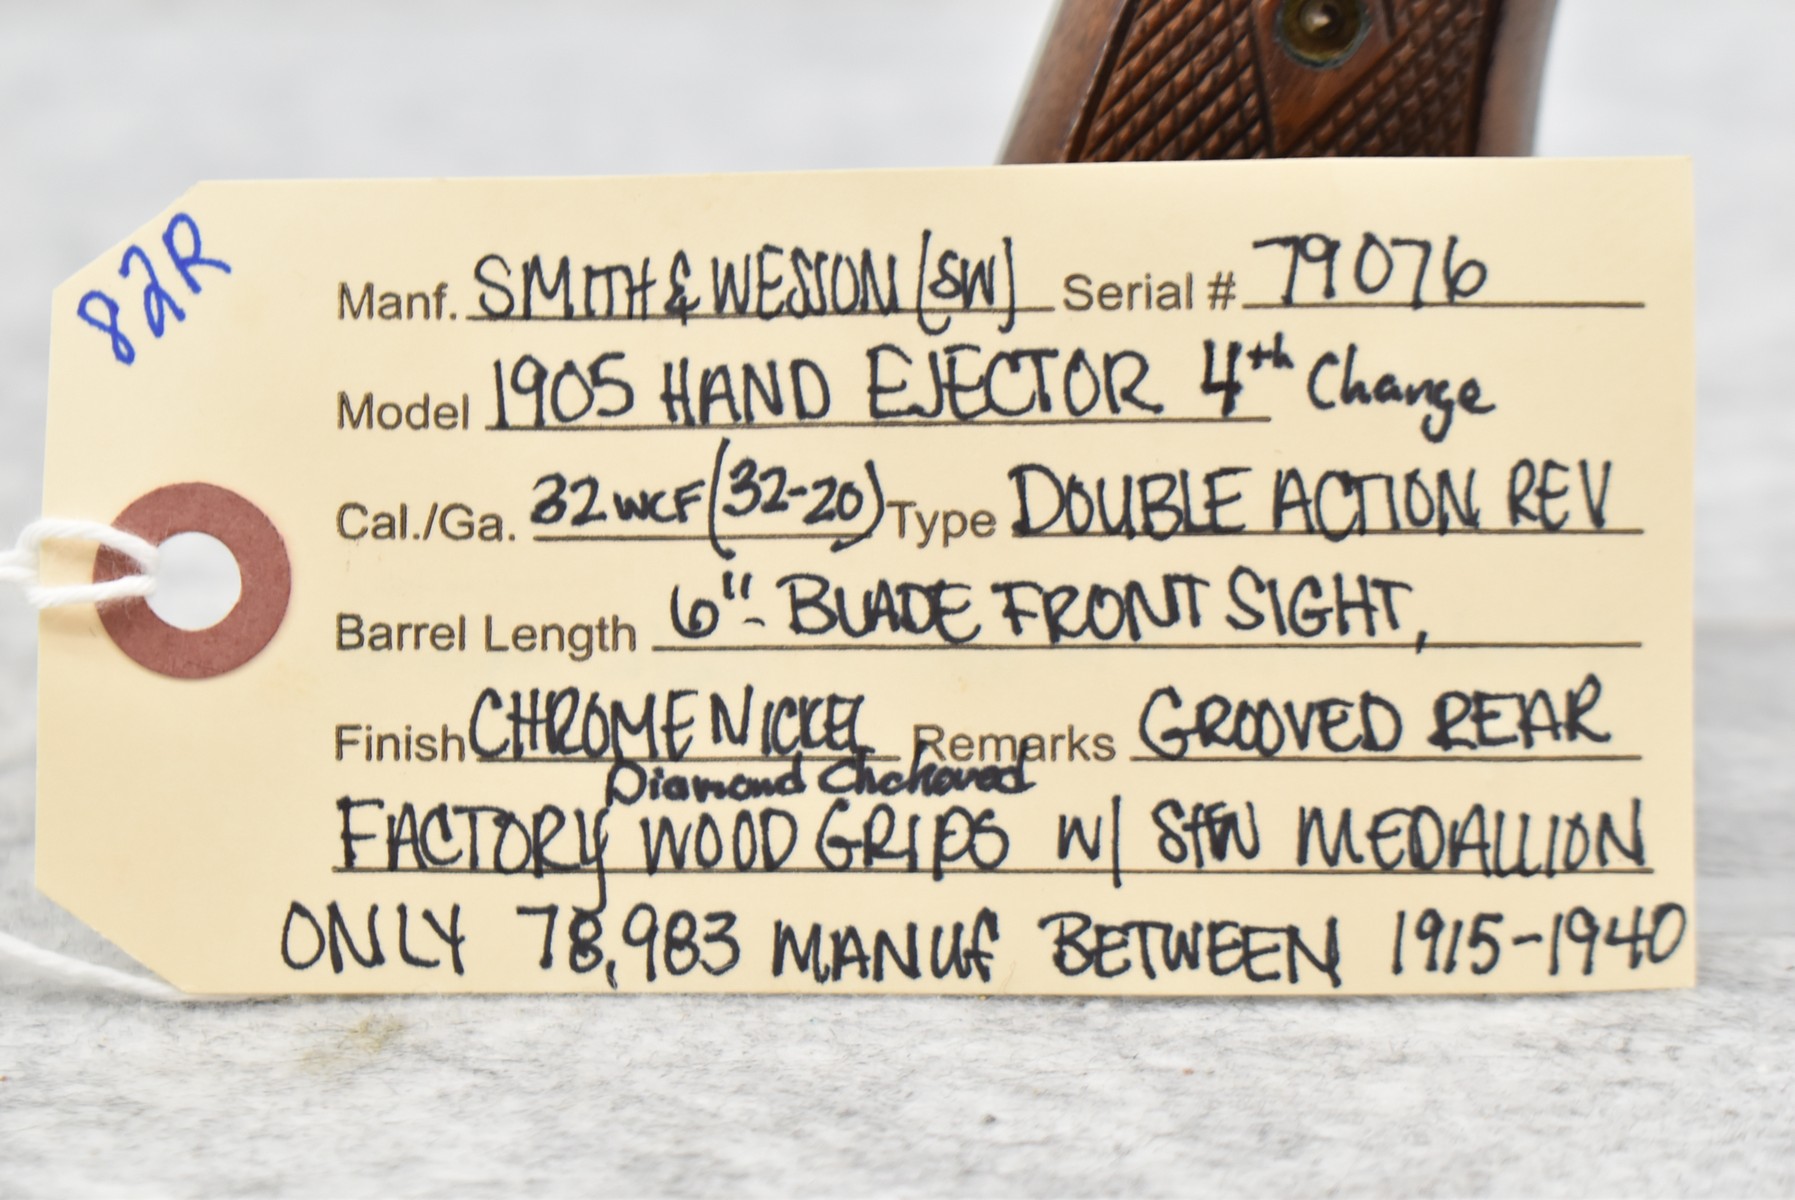 82R
Manf. SMITH & WESSON (SW) Serial # 79076
Model 1905 HAND EJECTOR 4th Change
Cal./Ga. 32 WCF (32-20) Type DOUBLE ACTION REV
Barrel Length 6" - BLADE FRONT SIGHT,
Finish CHROME NICKEL Remarks GROOVED REAR
Diamond Chckered
FACTORY WOOD GRIPS W/ S&W MEDALLION
ONLY 78,983 MANUF BETWEEN 1915-1940